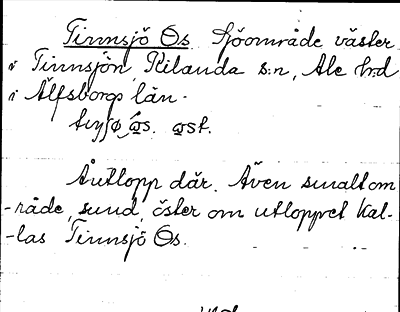 Tinnsjö Os Sjöområde väster
i Tinnsjön, Kilanda s:n, Ale h:d
i Älfsborgs län.
ọst.
Åutlopp där. Även smalt om-
-råde, sund, öster om utloppet kal-
-las Tinnsjö Os.